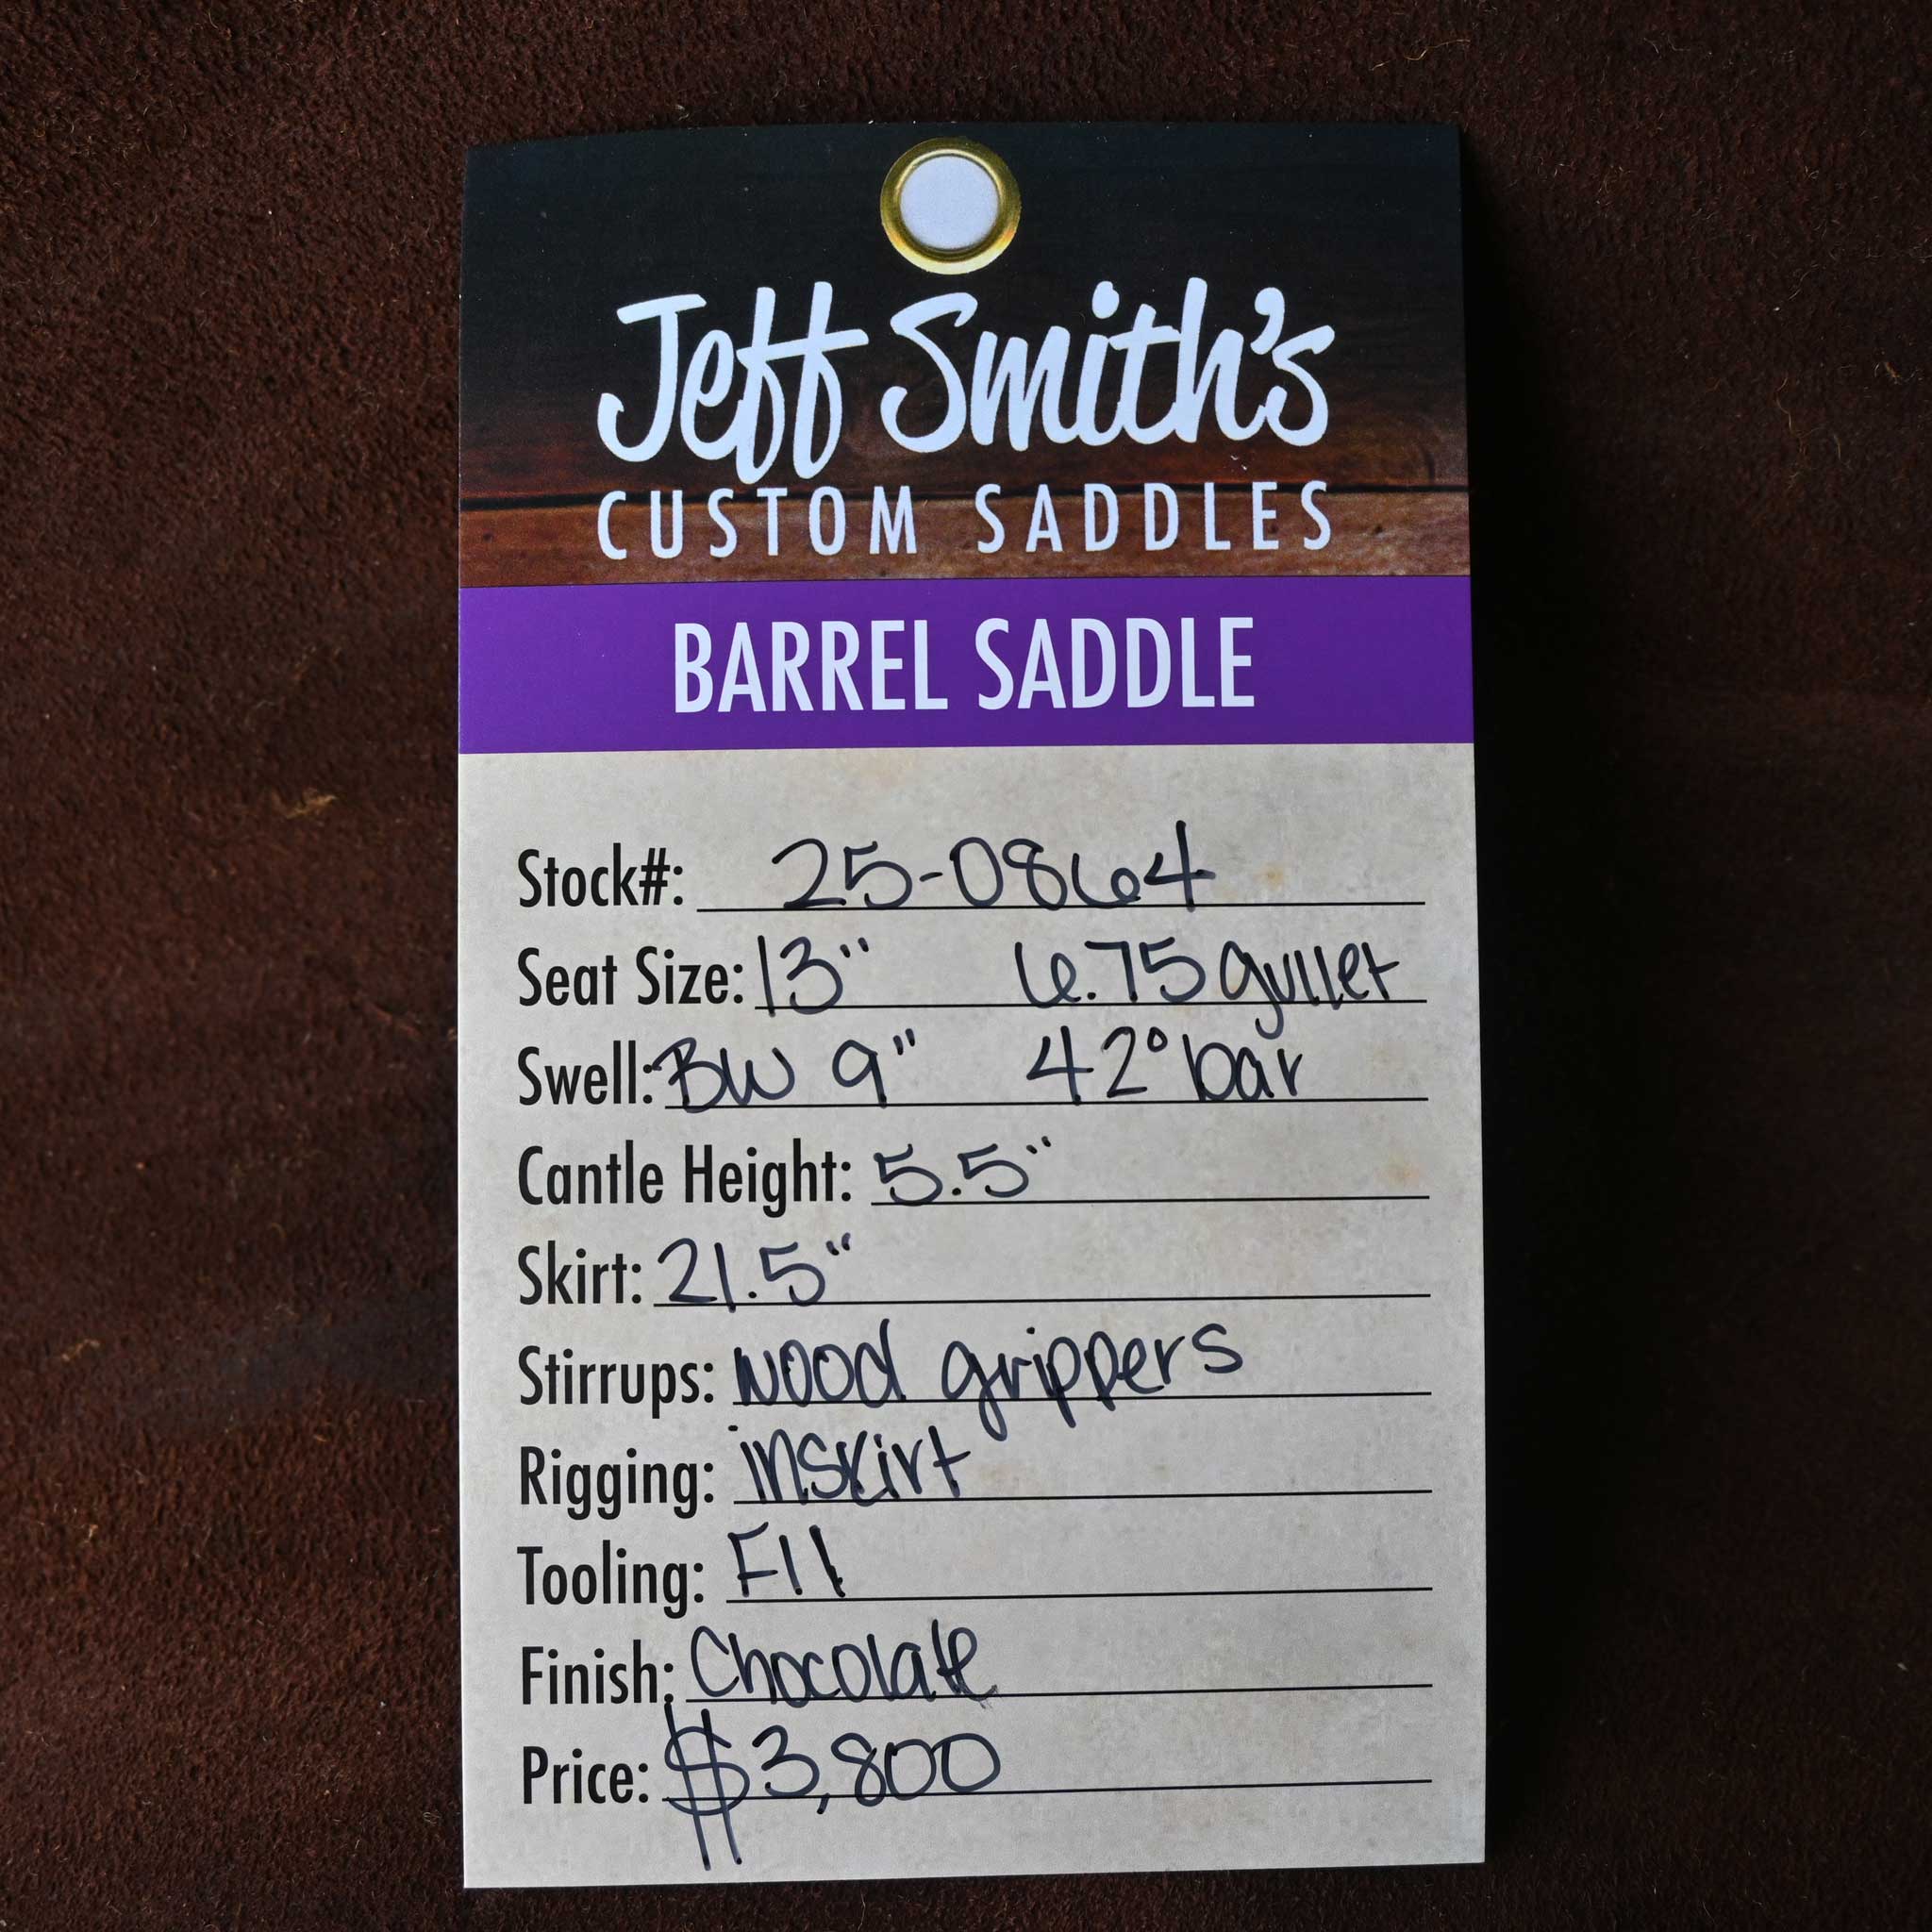 Jeff Smith's
CUSTOM SADDLES
BARREL SADDLE
Stock#: 25-0864
Seat Size: 13" 6.75 gullet
Swell: BW 9" 42° bar
Cantle Height: 5.5"
Skirt: 21.5"
Stirrups: wood grippers
Rigging: inskirt
Tooling: F11
Finish: Chocolate
Price: $3,800